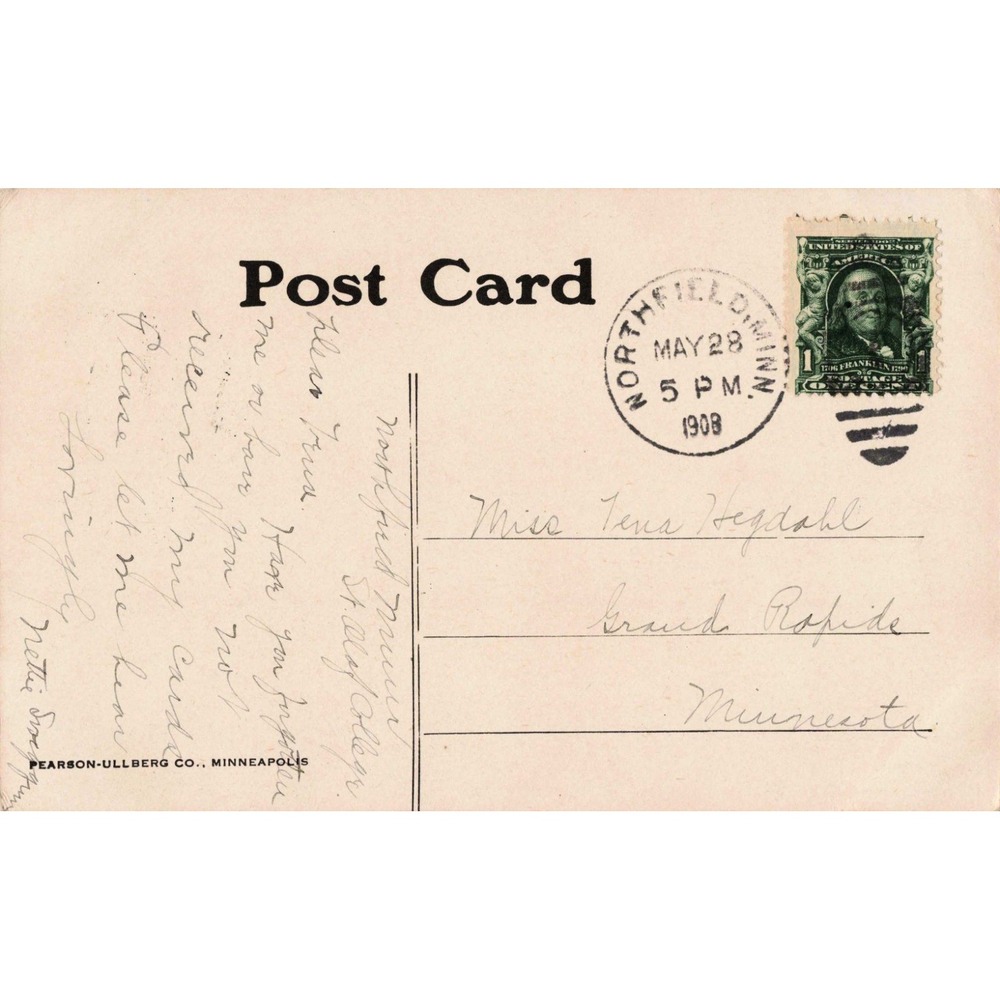 Post Card
NORTHFIELD, MINN.
MAY 28
5 PM
1908
SERIES 1902
UNITED STATES OF
AMERICA
1706 FRANKLIN 1790
1 POSTAGE 1
ONE CENT
Northfield Minn
St. Olaf College.
Dear Tena.
Have you forgotten
me or have you not
received my cards
Please let me hear
Lovingly
Nettie
Miss Tena Hegdahl
Grand Rapids
Minnesota
PEARSON-ULLBERG CO., MINNEAPOLIS